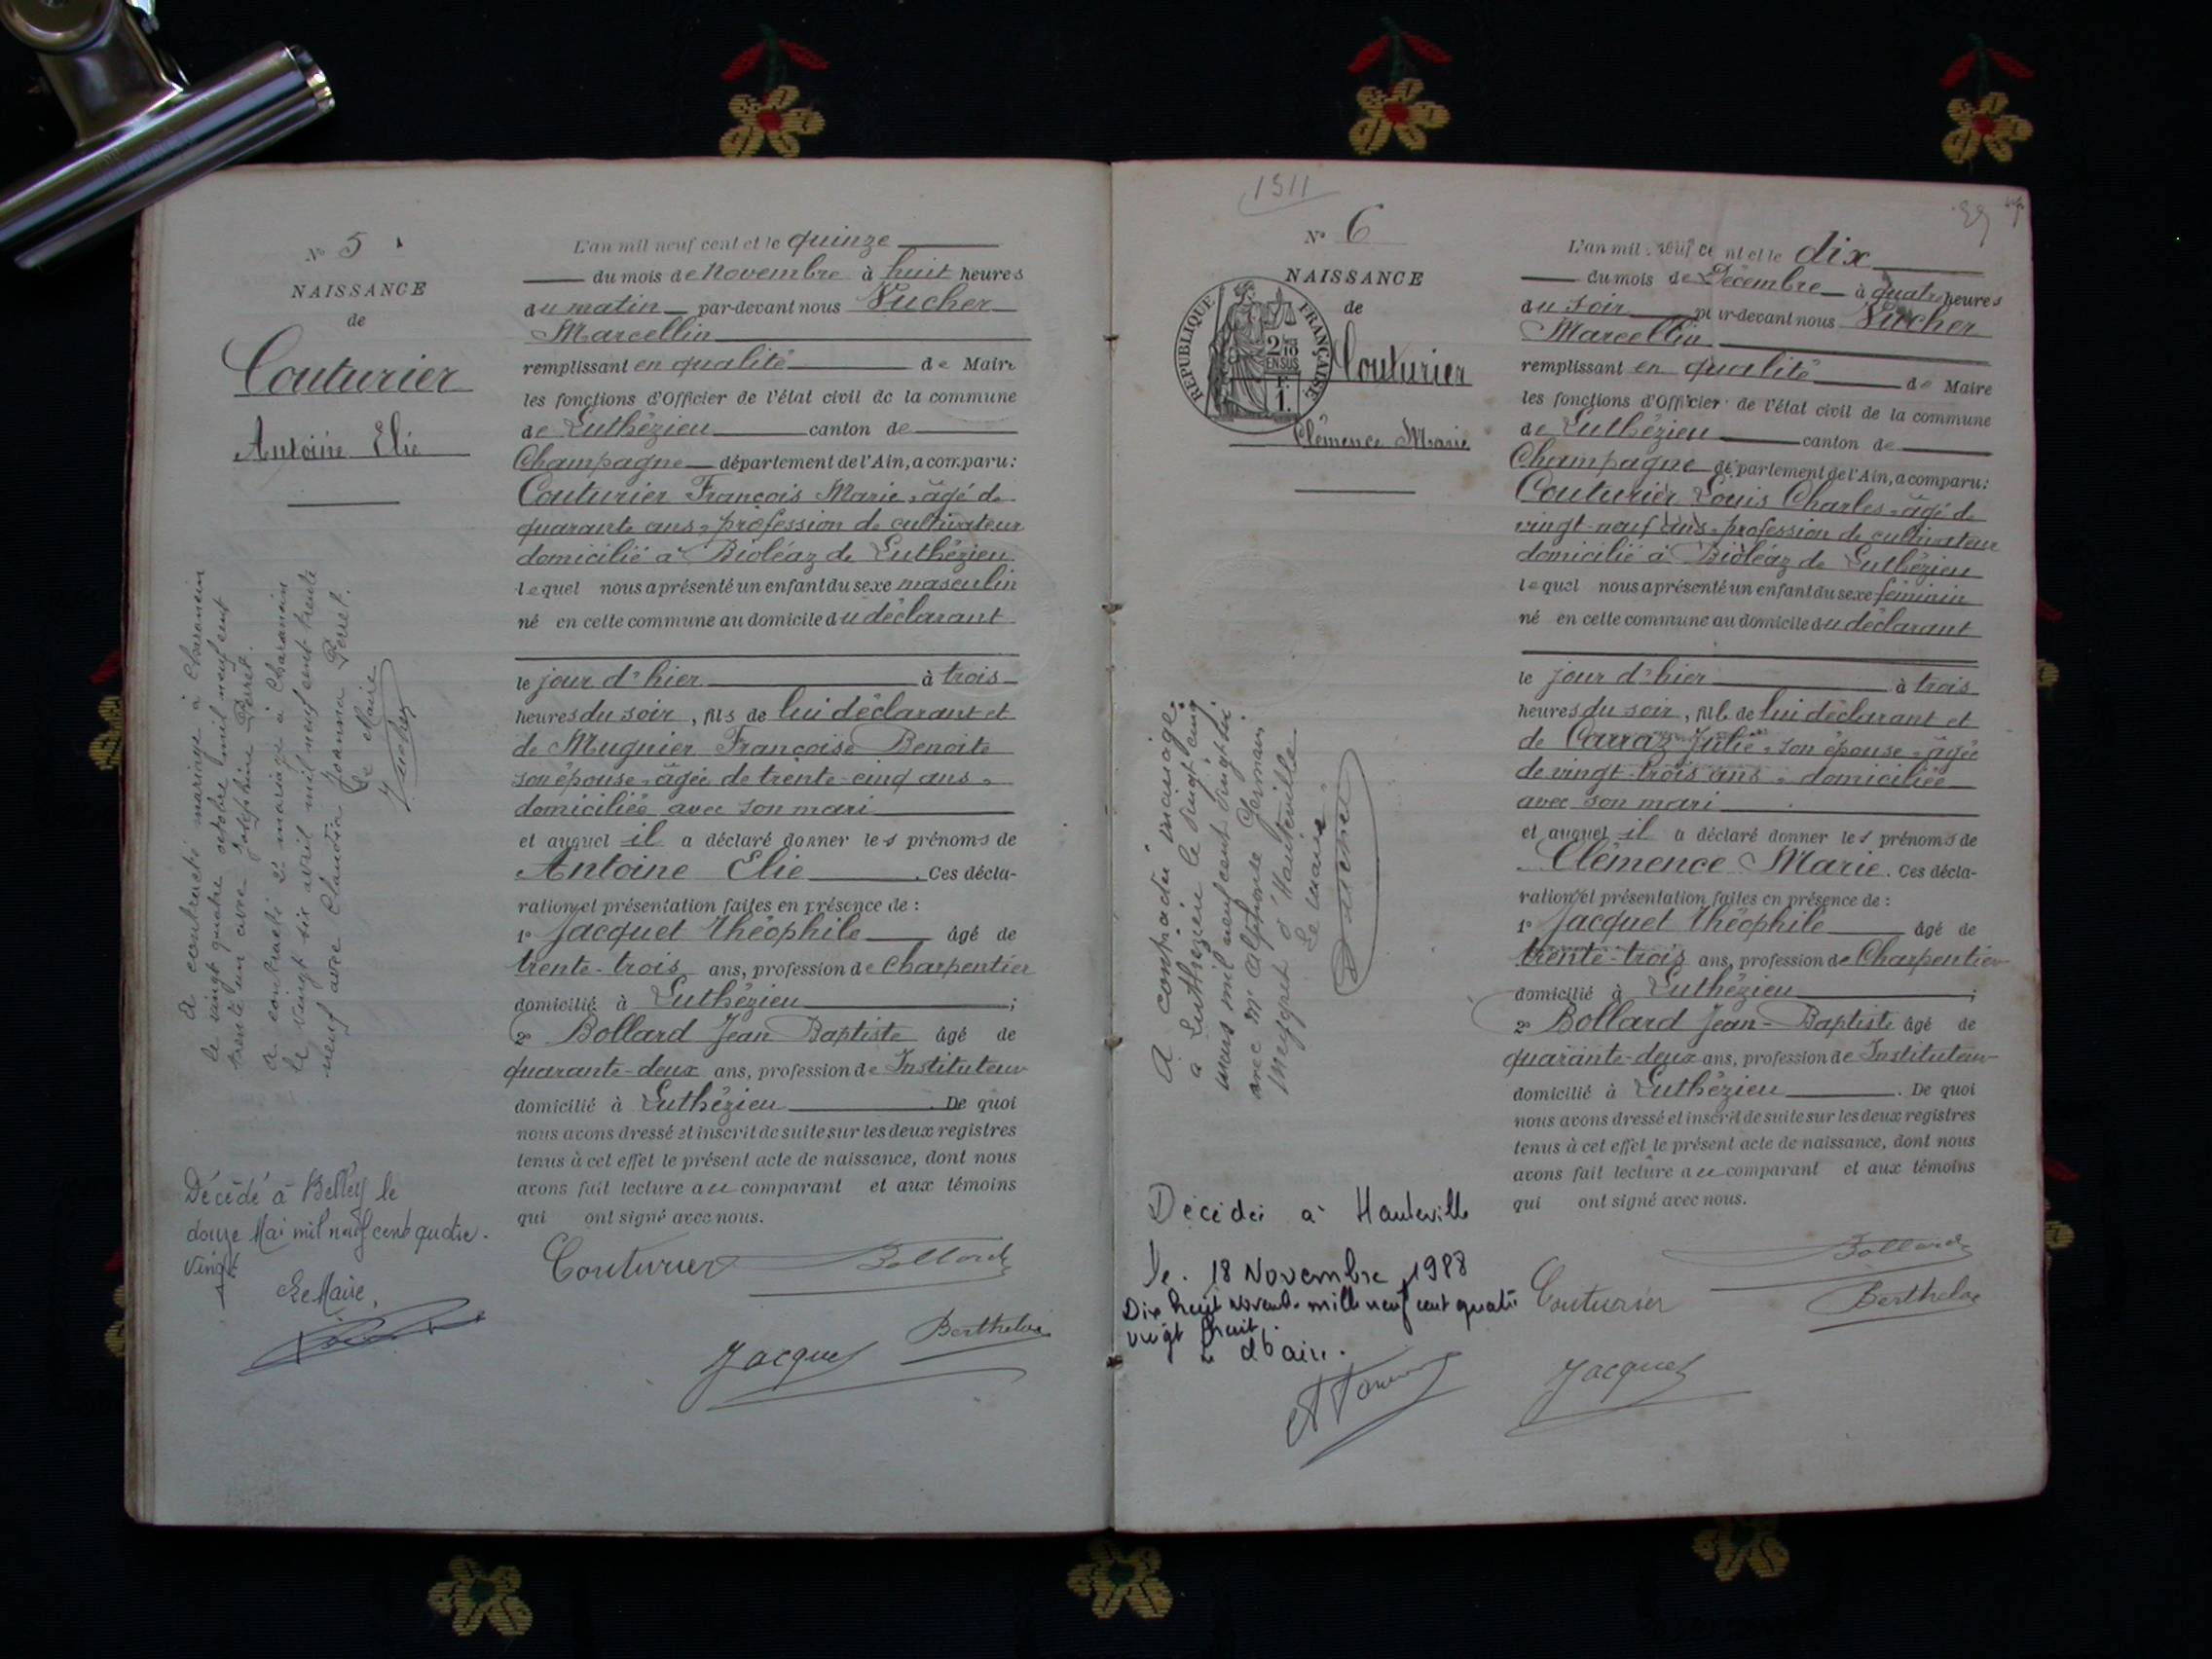 N° 5
NAISSANCE
de
Couturier
Antoine Elie
A contracté mariage à Charancin
le vingt quatre octobre mil neuf cent
trente un avec Joséphine Perret.
a contracté 2e mariage à Charancin
le vingt six avril mil neuf cent trente
neuf avec Claudia Joanna Perret.
Le Maire
Décédé à Belley le
douze Mai mil neuf cent quatre.
vingt
Le Maire,
L'an mil neuf cent et le quinze
du mois de Novembre à huit heures
du matin par-devant nous Vucher
Marcellin
remplissant en qualité de Maire
les fonctions d'Officier de l'état civil de la commune
de Luthézieu canton de
Champagne département de l'Ain, a comparu:
Couturier François Marie, âgé de
quarante ans, profession de cultivateur
domicilié à Bioléaz de Luthézieu
lequel nous a présenté un enfant du sexe masculin
né en cette commune au domicile du déclarant
le jour d'hier à trois
heures du soir, fils de lui déclarant et
de Mugnier Françoise Benoite
son épouse, âgée de trente-cinq ans,
domiciliée avec son mari
et auquel il a déclaré donner les prénoms de
Antoine Elie. Ces décla-
ration et présentation faites en présence de :
1° Jacquet Théophile âgé de
trente-trois ans, profession de Charpentier
domicilié à Luthézieu ;
2° Bollard Jean Baptiste âgé de
quarante-deux ans, profession de Instituteur
domicilié à Luthézieu. De quoi
nous avons dressé et inscrit de suite sur les deux registres
tenus à cet effet le présent acte de naissance, dont nous
avons fait lecture au comparant et aux témoins
qui ont signé avec nous.
Couturier Bollard
Jacquet Berthelot
1911
N° 6
NAISSANCE
de
REPUBLIQUE FRANÇAISE
2/10
EN SUS
1 F.
Couturier
Clémence Marie
A contracté mariage
à Luthézieu le vingt cinq
mars mil neuf cent vingt six
avec Mr Alphonse Germain
d'Hauteville
Le maire
Décédée à Hauteville
le. 18 Novembre 1988
Dix huit novemb. mille neuf cent quatre
vingt huit.
Le Maire.
L'an mil neuf cent et le dix
du mois de Décembre à quatre heures
du soir par-devant nous Vucher
Marcellin
remplissant en qualité de Maire
les fonctions d'Officier de l'état civil de la commune
de Luthézieu canton de
Champagne département de l'Ain, a comparu:
Couturier Louis Charles, âgé de
vingt-neuf ans, profession de cultivateur
domicilié à Bioléaz de Luthézieu
lequel nous a présenté un enfant du sexe féminin
né en cette commune au domicile du déclarant
le jour d'hier à trois
heures du soir, fille de lui déclarant et
de Carraz Julie, son épouse, âgée
de vingt-trois ans, domiciliée
avec son mari
et auquel il a déclaré donner les prénoms de
Clémence Marie. Ces décla-
ration et présentation faites en présence de :
1° Jacquet Théophile âgé de
trente-trois ans, profession de Charpentier
domicilié à Luthézieu ;
2° Bollard Jean-Baptiste âgé de
quarante-deux ans, profession de Instituteur
domicilié à Luthézieu. De quoi
nous avons dressé et inscrit de suite sur les deux registres
tenus à cet effet le présent acte de naissance, dont nous
avons fait lecture au comparant et aux témoins
qui ont signé avec nous.
Bollard
Couturier Berthelot
Jacquet